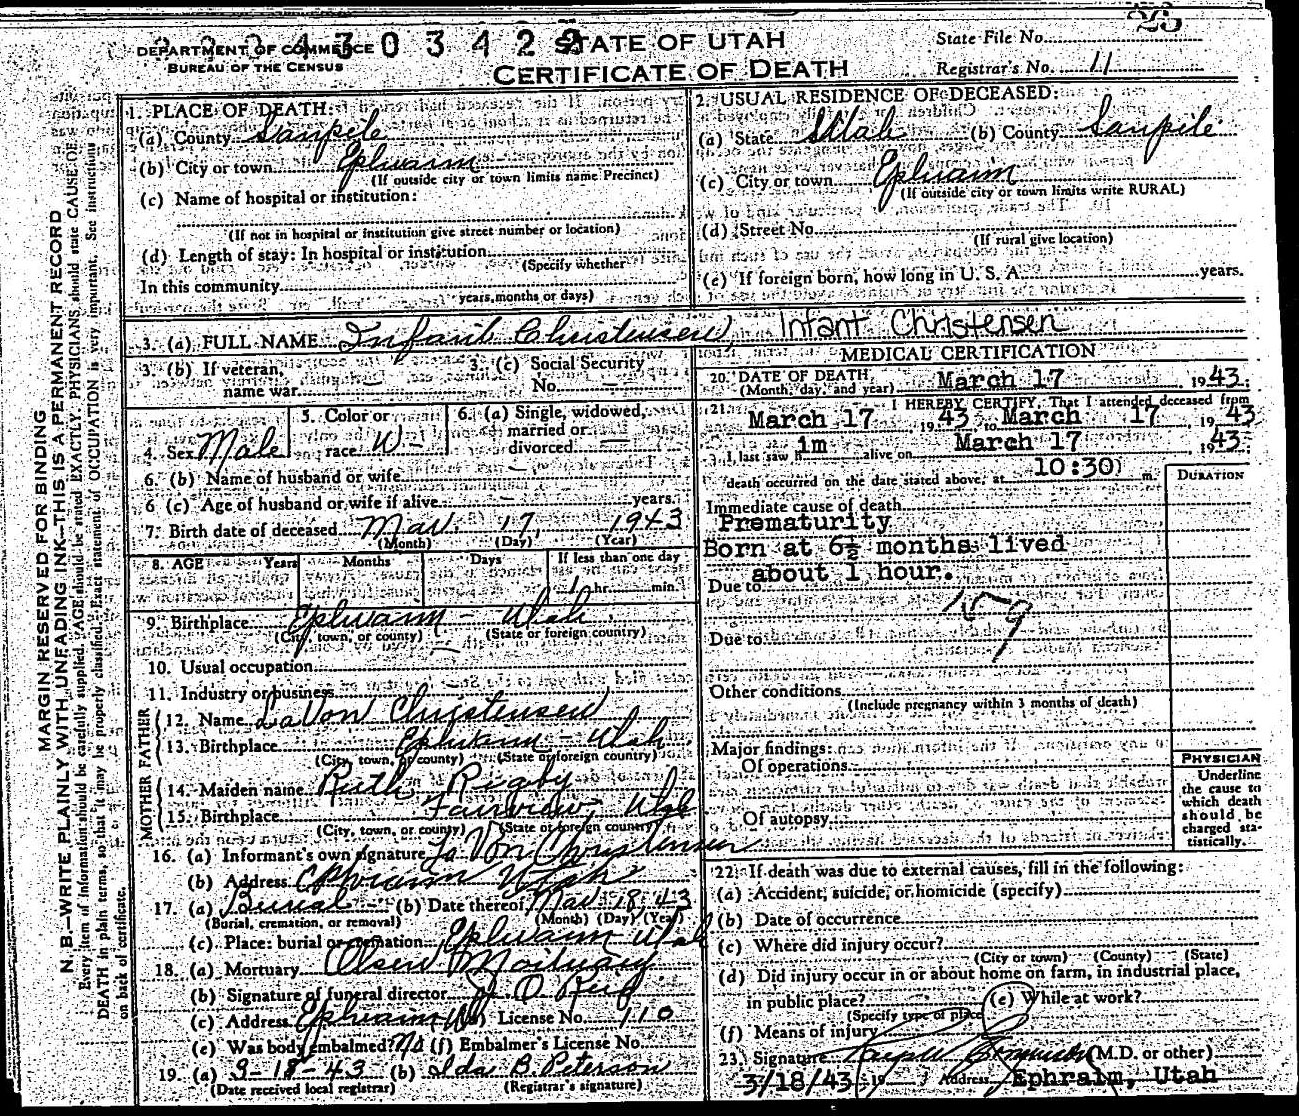 26
DEPARTMENT OF COMMERCE
BUREAU OF THE CENSUS
STATE OF UTAH
CERTIFICATE OF DEATH
State File No.
Registrar's No. 11
MARGIN RESERVED FOR BINDING
N. B.—WRITE PLAINLY WITH UNFADING INK—THIS IS A PERMANENT RECORD
Every item of information should be carefully supplied. AGE should be stated EXACTLY. PHYSICIANS should state CAUSE OF
DEATH in plain terms, so that it may be properly classified. Exact statement of OCCUPATION is very important. See instructions
on back of certificate.
1. PLACE OF DEATH:
(a) County Sanpete
(b) City or town Ephraim
(If outside city or town limits name Precinct)
(c) Name of hospital or institution:
(If not in hospital or institution give street number or location)
(d) Length of stay: In hospital or institution
(Specify whether
In this community
years, months or days)
2. USUAL RESIDENCE OF DECEASED:
(a) State Utah (b) County Sanpete
(c) City or town Ephraim
(If outside city or town limits write RURAL)
(d) Street No.
(If rural give location)
(e) If foreign born, how long in U. S. A. years.
3. (a) FULL NAME Infant Christensen Infant Christensen
3. (b) If veteran,
name war
3. (c) Social Security
No. —
4. Sex Male
5. Color or
race W-
6. (a) Single, widowed,
married or
divorced —
6. (b) Name of husband or wife
6 (c) Age of husband or wife if alive - years.
7. Birth date of deceased Mar. 17, 1943
(Month) (Day) (Year)
8. AGE Years Months Days If less than one day
1 hr. min.
9. Birthplace Ephraim - Utah
(City, town, or county) (State or foreign country)
10. Usual occupation
11. Industry or business
FATHER
12. Name LaVon Christensen
13. Birthplace Ephraim - Utah
(City, town, or county) (State or foreign country)
MOTHER
14. Maiden name Ruth Rigby
15. Birthplace Fairview, Utah
(City, town, or county) (State or foreign country)
16. (a) Informant's own signature LaVon Christensen
(b) Address Ephraim Utah
17. (a) Burial (b) Date thereof Mar 18 43
(Burial, cremation, or removal) (Month) (Day) (Year)
(c) Place: burial or cremation Ephraim Utah
18. (a) Mortuary Olsen Mortuary
(b) Signature of funeral director
(c) Address Ephraim License No. 110
(e) Was body embalmed? No (f) Embalmer's License No.
19. (a) 3-18-43 (b) Ida B. Peterson
(Date received local registrar) (Registrar's signature)
MEDICAL CERTIFICATION
20. DATE OF DEATH March 17, 1943;
(Month, day, and year)
21. I HEREBY CERTIFY, That I attended deceased from
March 17 1943 to March 17, 1943
I last saw him alive on March 17 1943;
death occurred on the date stated above, at 10:30 m.
DURATION
Immediate cause of death
Prematurity
Born at 6½ months lived
Due to about 1 hour.
159
Due to
Other conditions
(Include pregnancy within 3 months of death)
Major findings:
Of operations
Of autopsy
PHYSICIAN
Underline
the cause to
which death
should be
charged sta-
tistically.
22. If death was due to external causes, fill in the following:
(a) Accident, suicide, or homicide (specify)
(b) Date of occurrence
(c) Where did injury occur?
(City or town) (County) (State)
(d) Did injury occur in or about home on farm, in industrial place,
in public place? (e) While at work?
(Specify type of place)
(f) Means of injury
23. Signature (M.D. or other)
3/18/43 19 Address Ephraim, Utah